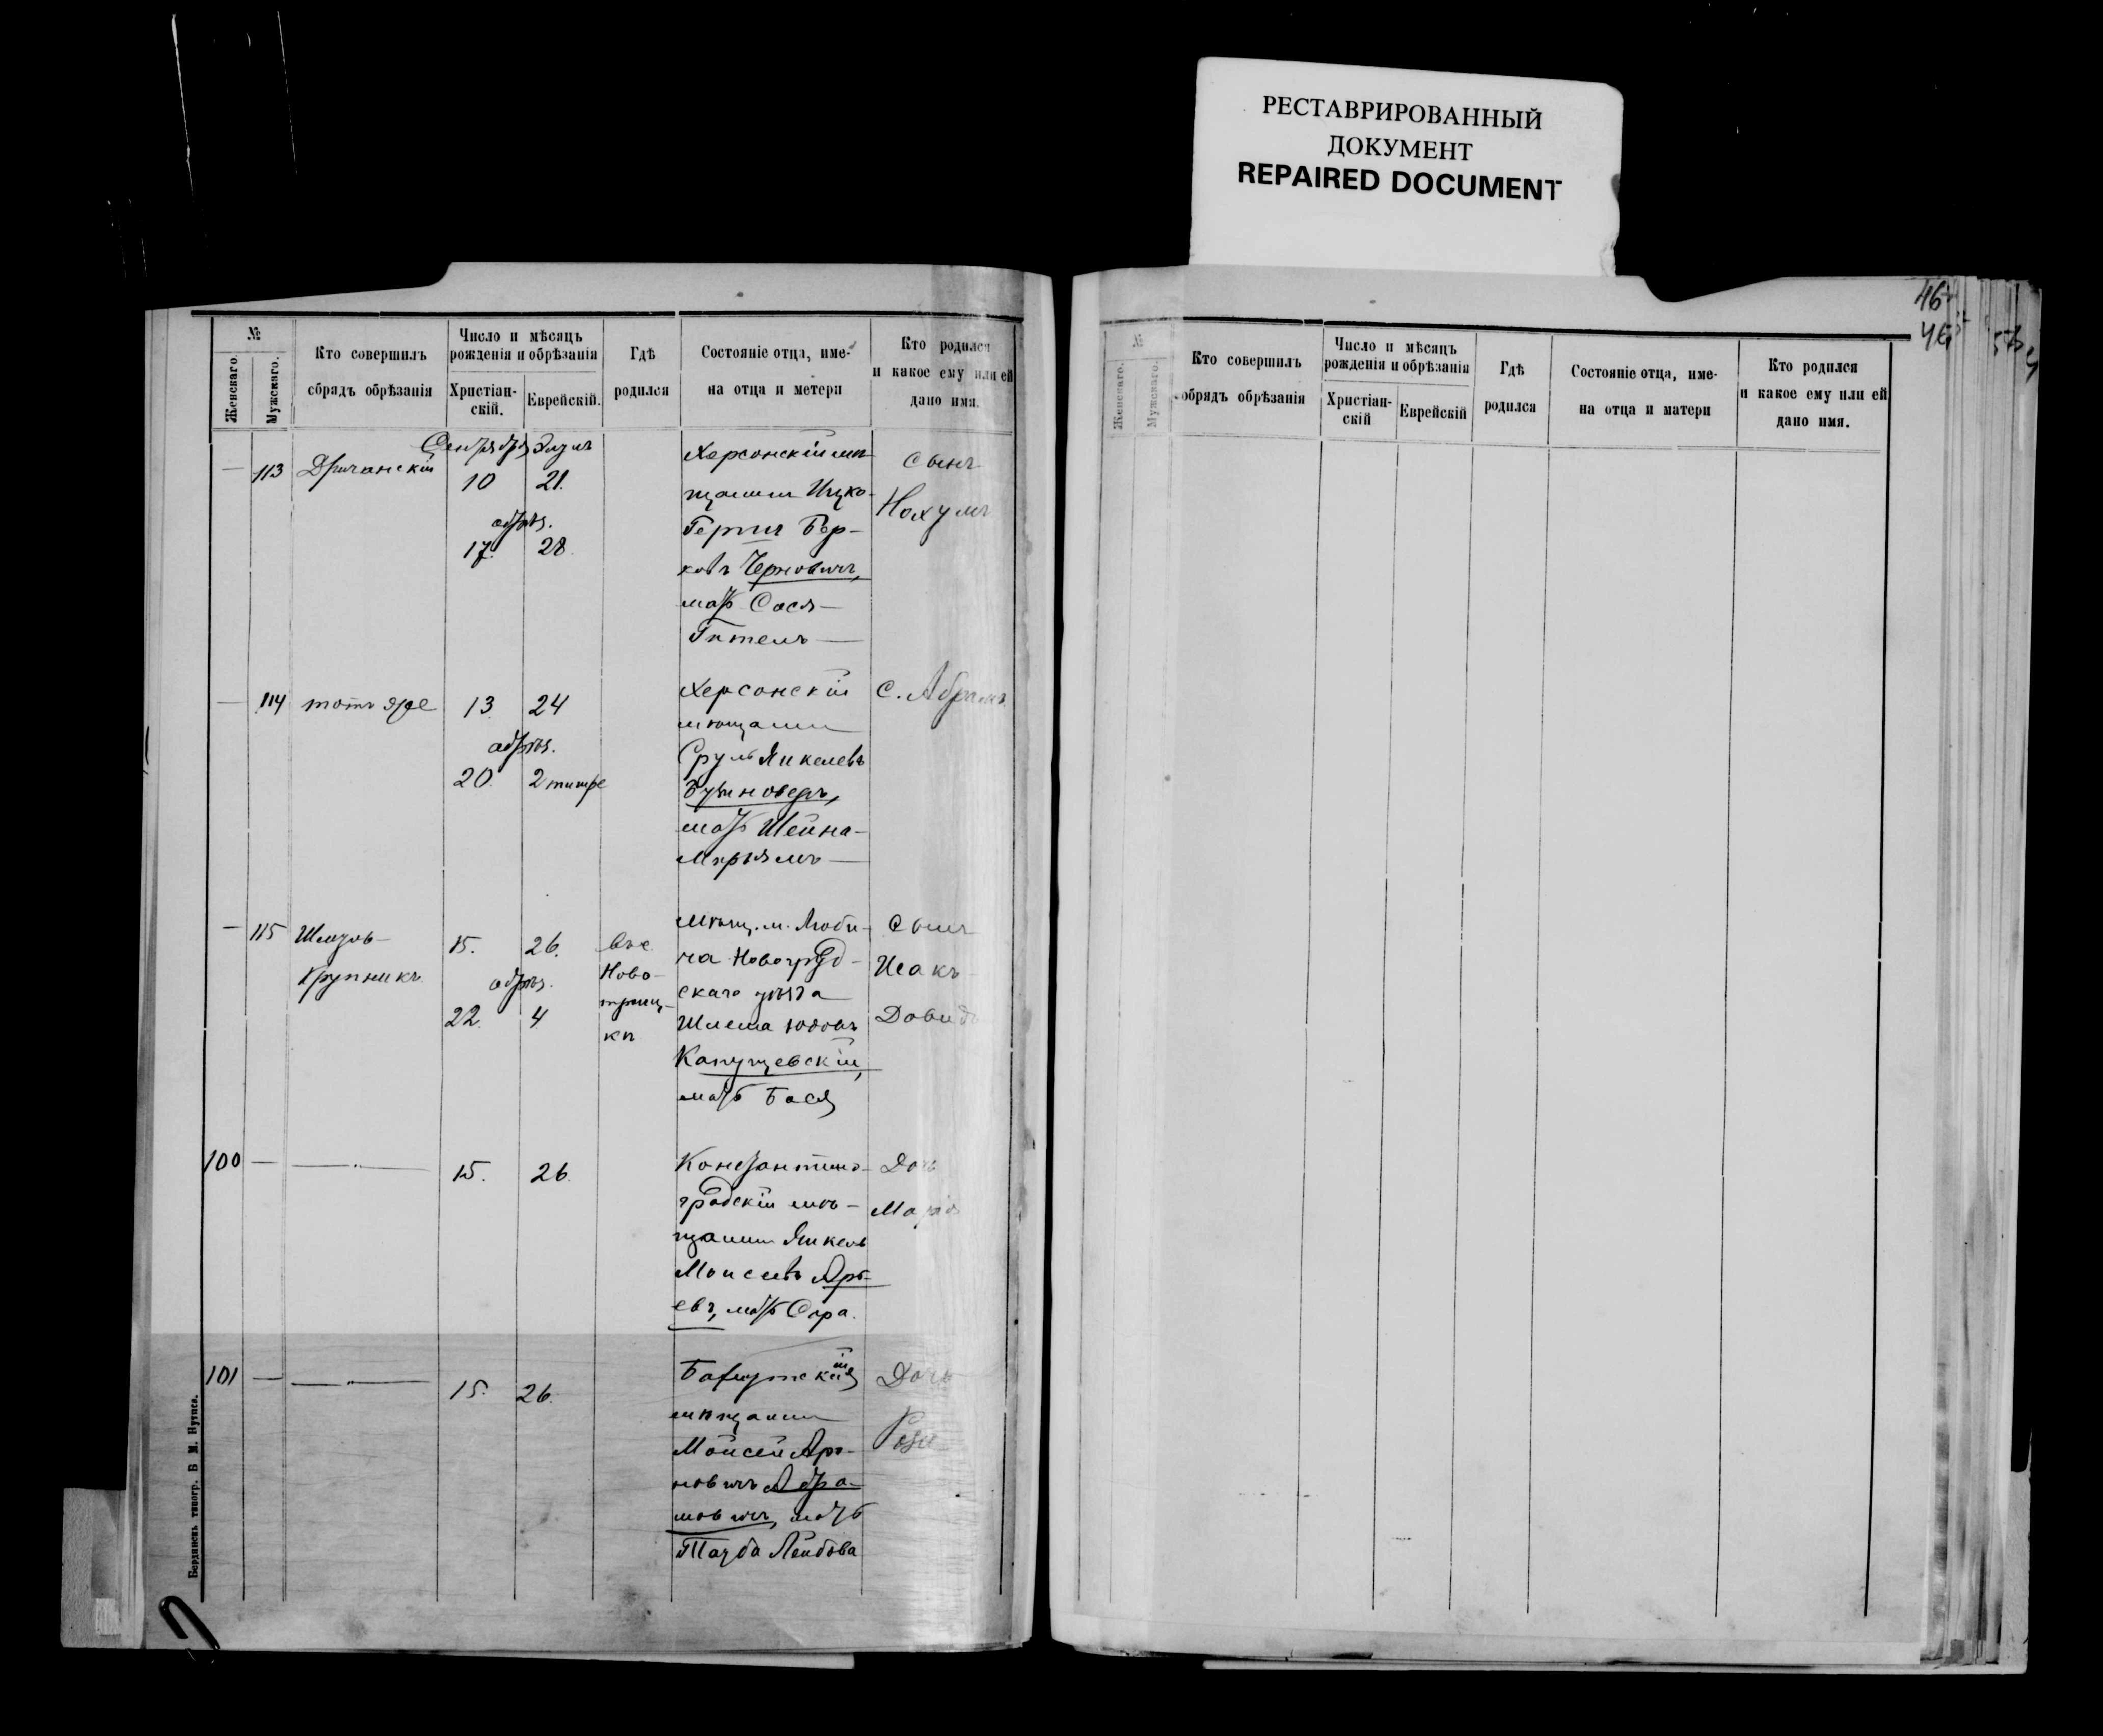 РЕСТАВРИРОВАННЫЙ
ДОКУМЕНТ
REPAIRED DOCUMENT
46
46
№
Женскаго.
Мужскаго.
Кто совершилъ
обрядъ обрѣзанія
Число и мѣсяцъ
рожденія и обрѣзанія
Христіан-
скій.
Еврейскій.
Гдѣ
родился
Состояніе отца, име-
на отца и метери
Кто родился
и какое ему или ей
дано имя.
Сентября Элулъ
— 113 10 21.
обрѣз.
17. 28.
Херсонскій мѣ-
щанинъ Ицко-
Гершъ Бер-
ковъ Черновичъ,
мать Сося-
Гитель —
сынъ
Нохумъ
— 114 тотъ же 13. 24
обрѣз.
20. 2 тишре
Херсонскій
мѣщанинъ
Сруль Янкелевъ
мать Шейна-
Мирьямъ —
С. Абрамъ
— 115 Шмуль-
Крупникъ
15. 26.
обрѣз.
22. 4
въ с.
Ново-
троиц-
кѣ
мѣщ. м. Люби-
ча Новогруд-
скаго уѣзда
Шлема Юдовъ
Капущевскій,
мать Бася
сынъ
Исакъ
Довидъ
100 — — 15. 26.
Константино-
градскій мѣ-
щанинъ Янкель
Моисеевъ Арь-
евъ, мать Сора.
Дочь
Марія
101 — — 15. 26.
мѣщанинъ
Мойсей Аро-
новичъ Абра-
мовичъ, мать
Тауба Лейбова
Дочь
Бердянскъ типогр. В М. Нутиса.
№
Женскаго.
Мужскаго.
Кто совершилъ
обрядъ обрѣзанія
Число и мѣсяцъ
рожденія и обрѣзанія
Христіан-
скій
Еврейскій
Гдѣ
родился
Состояніе отца, име-
на отца и матери
Кто родился
и какое ему или ей
дано имя.